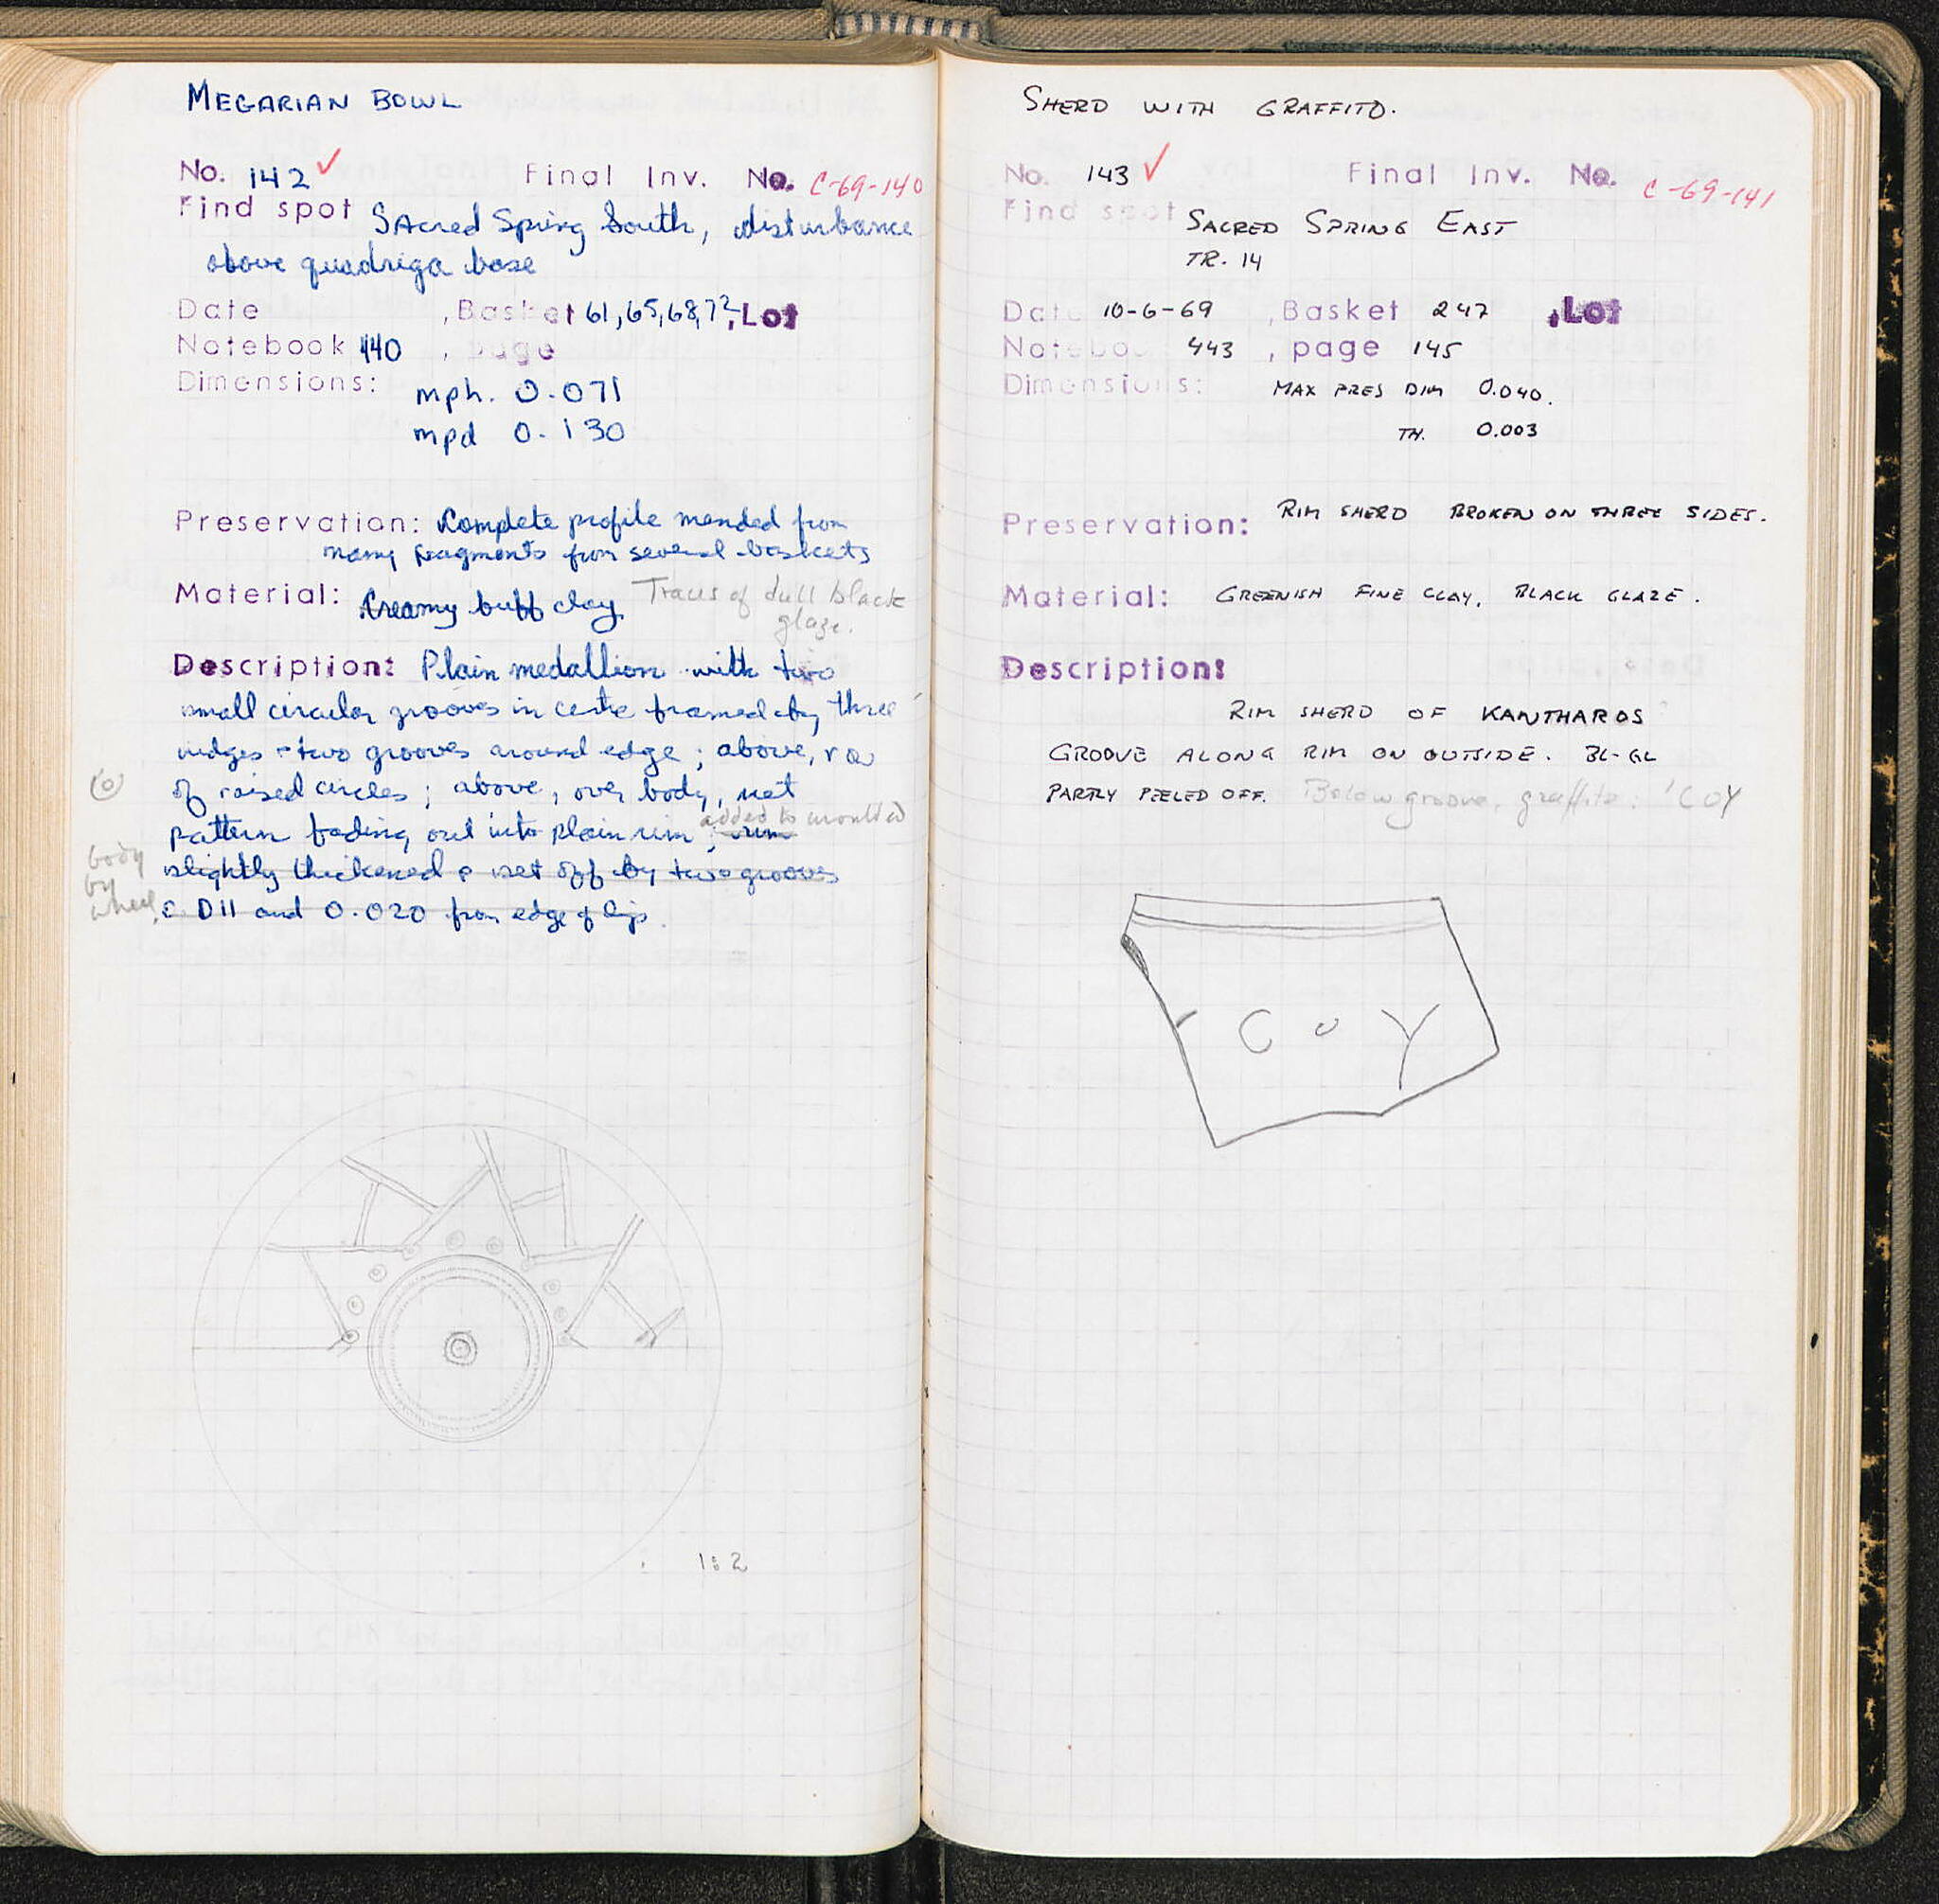 MEGARIAN BOWL
No. 142 ✓ Final Inv. No. C-69-140
Find spot Sacred Spring South, disturbance
above quadriga base
Date , Basket 61, 65, 68, 72, Lot
Notebook 440 , page
Dimensions: mph. 0.071
mpd 0.130
Preservation: Complete profile mended from
many fragments from several baskets
Material: Creamy buff clay Traces of dull black
glaze.
Description: Plain medallion with two
small circular grooves in centre framed by three
ridges + two grooves around edge; above, row
of raised circles; above, over body, net
pattern fading out into plain rim; rim added to moulded
body
by
wheel.
slightly thickened & set off by two grooves
c. 011 and 0.020 from edge of lip.
1:2
SHERD WITH GRAFFITO.
No. 143 ✓ Final Inv. No. C-69-141
Find spot SACRED SPRING EAST
TR. 14
Date 10-6-69 , Basket 247 , Lot
Notebook 443 , page 145
Dimensions: MAX PRES DIM 0.040.
TH. 0.003
Preservation: RIM SHERD BROKEN ON THREE SIDES.
Material: GREENISH FINE CLAY, BLACK GLAZE.
Description:
RIM SHERD OF KANTHAROS
GROOVE ALONG RIM ON OUTSIDE. BL-GL
PARTLY PEELED OFF. Below groove, graffito: 'COY
C O Y